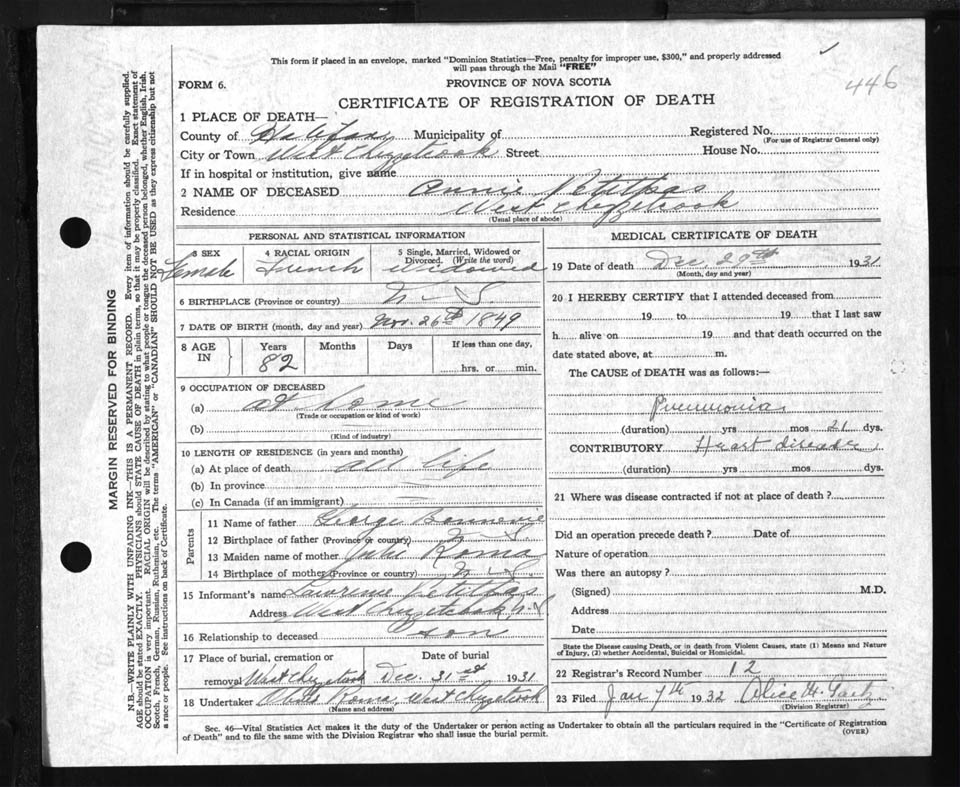 This form if placed in an envelope, marked "Dominion Statistics—Free, penalty for improper use, $300," and properly addressed
will pass through the Mail "FREE"
446
FORM 6.
PROVINCE OF NOVA SCOTIA
CERTIFICATE OF REGISTRATION OF DEATH
1 PLACE OF DEATH—
County of Halifax Municipality of Registered No.
(For use of Registrar General only)
City or Town West Chezzetcook Street House No.
If in hospital or institution, give name
2 NAME OF DECEASED Annie Petitpas
Residence West Chezzetcook
(Usual place of abode)
PERSONAL AND STATISTICAL INFORMATION
3 SEX 4 RACIAL ORIGIN 5 Single, Married, Widowed or
Divorced. (Write the word)
Female French Widowed
6 BIRTHPLACE (Province or country) N. S.
7 DATE OF BIRTH (month, day and year) Nov. 26th 1849
8 AGE IN Years Months Days If less than one day,
82 hrs. or min.
9 OCCUPATION OF DECEASED
(a) at home
(Trade or occupation or kind of work)
(b)
(Kind of industry)
10 LENGTH OF RESIDENCE (in years and months)
(a) At place of death all life
(b) In province
(c) In Canada (if an immigrant)
Parents
11 Name of father George
12 Birthplace of father (Province or country) N. S.
13 Maiden name of mother Julie Roma
14 Birthplace of mother (Province or country) N. S.
15 Informant's name Petitpas
Address West Chezzetcook N. S.
16 Relationship to deceased son
17 Place of burial, cremation or Date of burial
removal West Chezzetcook Dec. 31st 1931
18 Undertaker Roma, West Chezzetcook
(Name and address)
MEDICAL CERTIFICATE OF DEATH
19 Date of death Dec. 29th 1931
(Month, day and year)
20 I HEREBY CERTIFY that I attended deceased from
19 to 19 that I last saw
h alive on 19 and that death occurred on the
date stated above, at m.
The CAUSE of DEATH was as follows:—
Pneumonia
(duration) yrs mos 21 dys.
CONTRIBUTORY Heart disease
(duration) yrs mos dys.
21 Where was disease contracted if not at place of death?
Did an operation precede death? Date of
Nature of operation
Was there an autopsy?
(Signed) M.D.
Address
Date
State the Disease causing Death, or in death from Violent Causes, state (1) Means and Nature
of Injury, (2) whether Accidental, Suicidal or Homicidal.
22 Registrar's Record Number 12
23 Filed Jan 7th 1932 Alice H.
(Division Registrar)
Sec. 46—Vital Statistics Act makes it the duty of the Undertaker or person acting as Undertaker to obtain all the particulars required in the "Certificate of Registration
of Death" and to file the same with the Division Registrar who shall issue the burial permit.
(OVER)
MARGIN RESERVED FOR BINDING
N.B.—WRITE PLAINLY WITH UNFADING INK—THIS IS A PERMANENT RECORD. Every item of information should be carefully supplied.
AGE should be stated EXACTLY. PHYSICIANS should STATE CAUSE OF DEATH in plain terms, so that it may be properly classified. Exact statement of
OCCUPATION is very important. RACIAL ORIGIN will be described by stating to what people or tongue the deceased person belonged, whether English, Irish,
Scotch, French, German, Russian, Ruthenian, etc. The terms "AMERICAN" or "CANADIAN" SHOULD NOT BE USED as they express citizenship but not
a race or people. See instructions on back of Certificate.